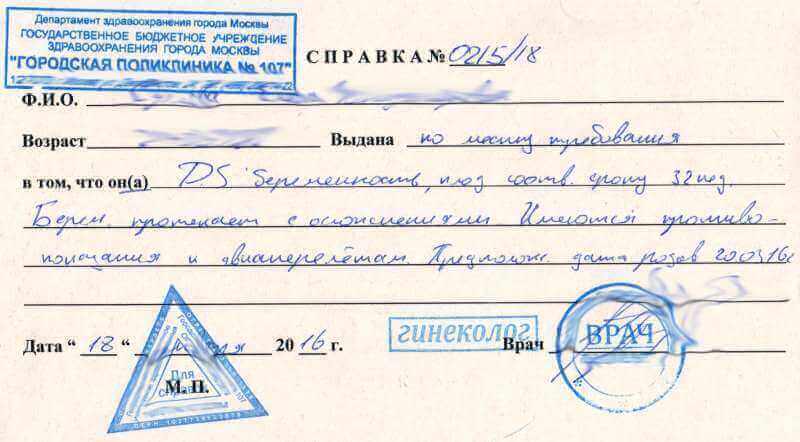 Департамент здравоохранения города Москвы
ГОСУДАРСТВЕННОЕ БЮДЖЕТНОЕ УЧРЕЖДЕНИЕ
ЗДРАВООХРАНЕНИЯ ГОРОДА МОСКВЫ
"ГОРОДСКАЯ ПОЛИКЛИНИКА № 107"
СПРАВКА № 0215/18
Ф.И.О.
Возраст Выдана по месту требования
в том, что он(а) D.S: беременность, плод соотв. сроку 32 нед.
Берем. протекает с осложнениями. Имеются противо-
показания к авиаперелётам. Предполож. дата родов 20.03.16г
Дата " 18 " 20 16 г. гинеколог Врач
ВРАЧ
Для
справок
М. П.